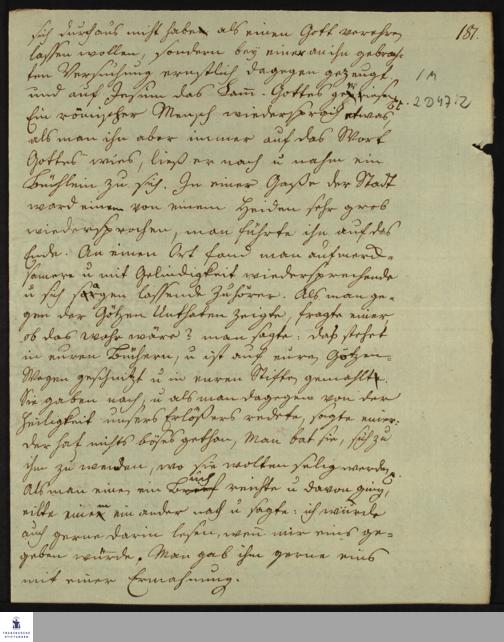 sich durchaus nicht haben als einen Gott verehren
187.
lassen wollen, sondern bey einer an ihn gebrach-
ten Versuchung ernstlich dagegen gezeugt
und auf Jesum das Lamm Gottes gewiesen
1 M
2 D47:2
Ein römischer Mensch wiedersprach etwas
als man ihn aber immer auf das Wort
Gottes wies, ließ er nach u nahm ein
Büchlein zu sich. In einer Gaße der Stadt
ward einem von einem Heiden sehr grob
wiedersprochen, man führte ihn auf das
Ende. An einem Ort fand man aufmerck-
samere u mit Gelindigkeit wiedersprechende
u sich sagen lassende Zuhörer. Als man ge-
gen der Götzen Unthaten zeigte, fragte einer
ob das wahr wäre? man sagte: das stehet
in euren Büchern, u ist auf euren Götzen-
Wagen geschnitzt u in euren Stiften gemahlt.
Sie gaben nach u als man dagegen von der
Heiligkeit unsers Erlösers redete, sagte einer:
der hat nichts böses gethan, Man bat sie, sich zu
ihm zu wenden, wo sie wolten selig werden.
Als man einem ein Buch reichte u davon ging,
eilte einem ein ander nach u sagte: ich würde
auch gerne darin lesen, wenn mir eins ge-
geben würde. Man gab ihm gerne eins
mit einer Ermahnung.
FRANCKESCHE
STIFTUNGEN